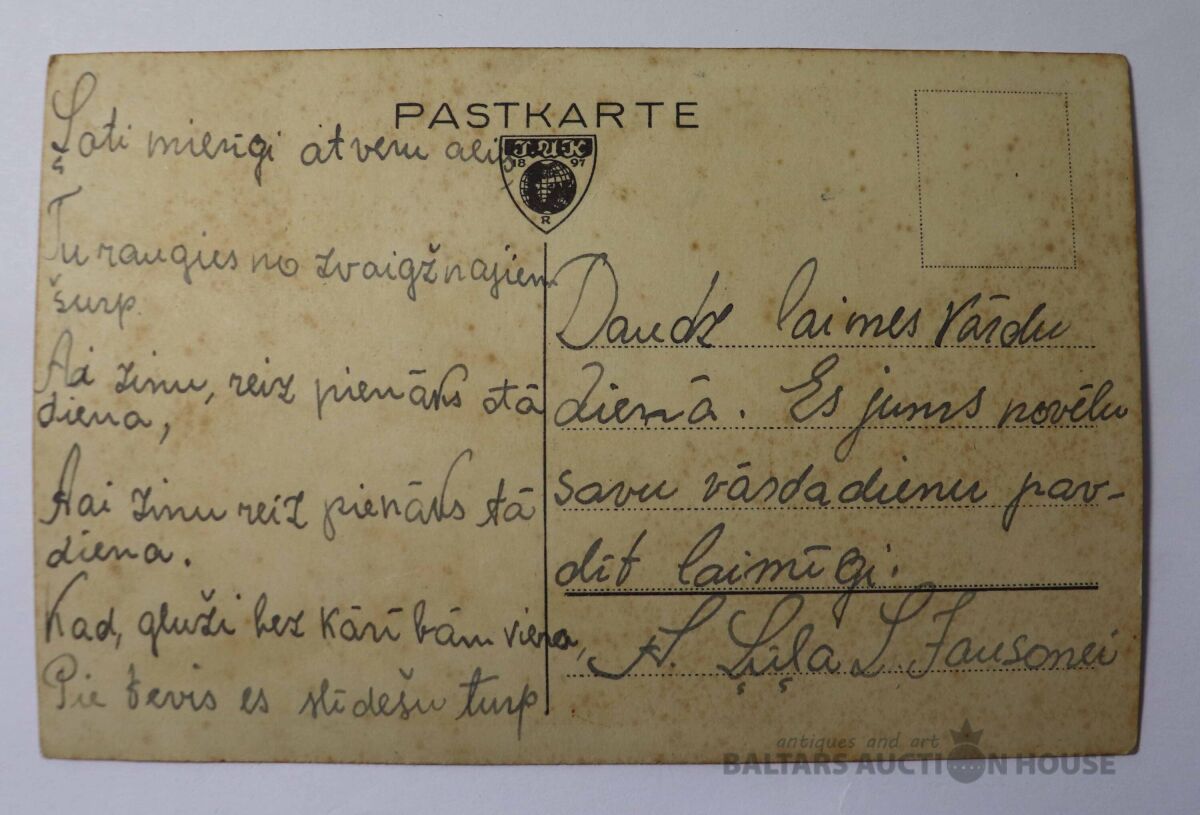 PASTKARTE
I.U.K
18 97
R
Ļoti mierīgi atveru acis
Tu raugies no zvaigžnajiem
šurp.
Ai zinu, reiz pienāks tā
diena,
Aai zinu reiz pienāks tā
diena.
Kad, gluži bez kārībām viena,
Pie tevis es slīdešu turp
Daudz laimes Vārdu
dienā. Es jums novēlu
savu vārdadienu pav-
dīt laimīgi.
A. Ļūļa L. Jansonei
antiques and art
BALTARS AUCTION HOUSE